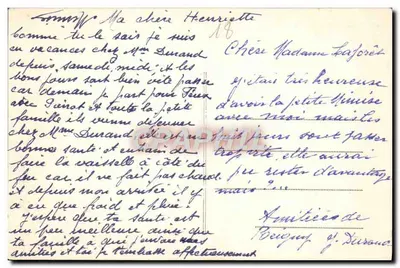 Ma chère Henriette
comme tu le sais je suis
en vacances chez Mme Durand
depuis samedi midi et les
bons jours sont bien vite passés
car demain je part pour
avec et toute la petite
famille ils venus déjeuner
chez Mme Durand et
bonne santé et en train de
faire la vaisselle à côté du
feu car il ne fait pas chaud
et depuis mon arrivée il y
a eu que froid et pluie
j'espère que ta santé est
un peu meilleure ainsi que
ta famille à qui
amitiés et toi je t'embrasse affectueusement
18
Chère Madame Laforêt
j'étais très heureuse
d'avoir la petite Mimise
avec moi mais les
jours sont passés
trop vite elle aurai
pu rester d'avantage
mais "...
Amitiées de
Durand